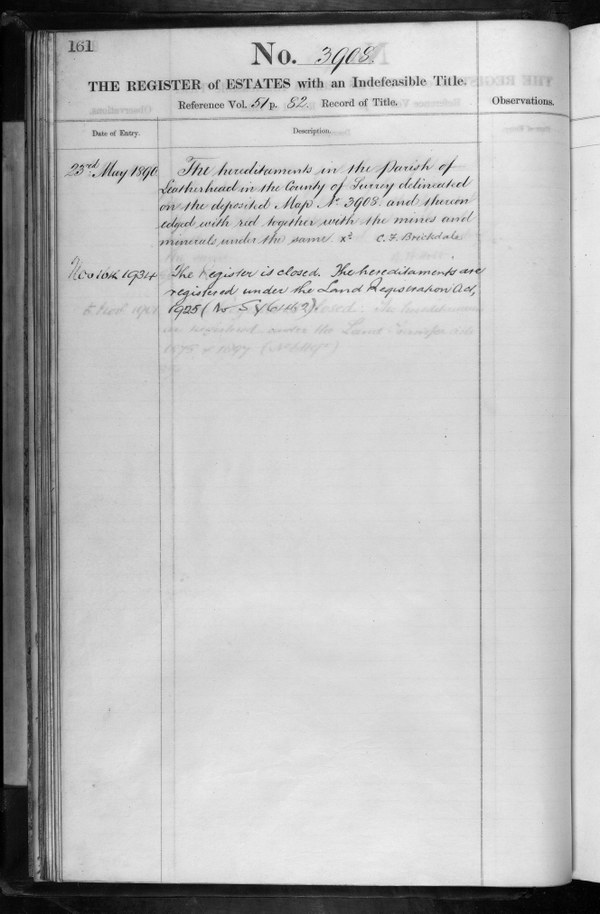 161
No. 3908.
THE REGISTER of ESTATES with an Indefeasible Title.
Reference Vol. 51 p. 82. Record of Title.
Observations.
Date of Entry.
Description.
23rd May 1890
The hereditaments in the Parish of
Leatherhead in the County of Surrey delineated
on the deposited Map No 3908. and thereon
edged with red together with the mines and
minerals under the same C. F. Brickdale
Nov 16th 1934
The Register is closed. The hereditaments are
registered under the Land Registration Act,
1925 (No